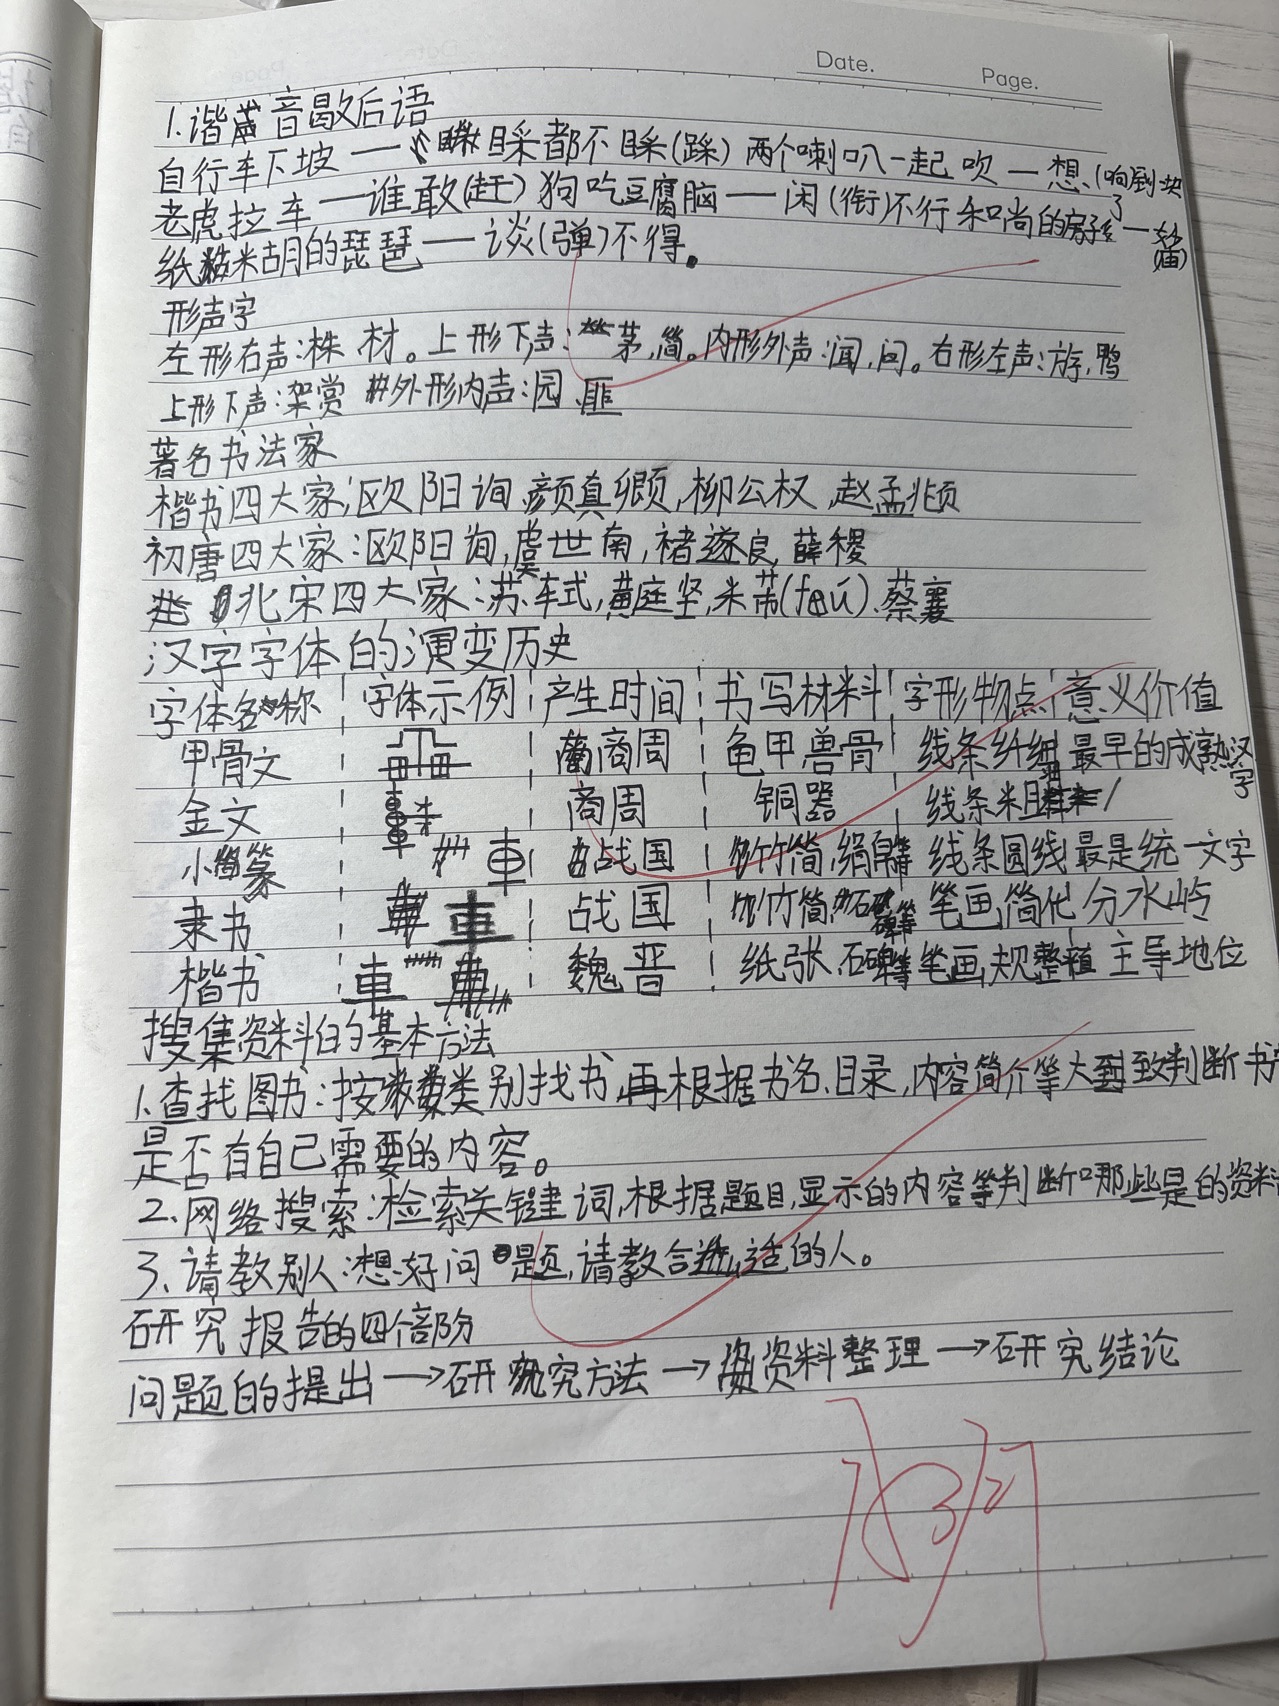 Date. Page.
1.谐音歇后语
自行车下坡——睬都不睬(踩) 两个喇叭一起吹—想(响)到一块了
老虎拉车——谁敢(赶) 狗吃豆腐脑——闲(衔)不行 和尚的房子—妙(庙)
纸糊的琵琶——谈(弹)不得。
形声字
左形右声:株 材。上形下声:茅,简。内形外声:闻,问。右形左声:放,鸭
上形下声:架赏 外形内声:园、匪
著名书法家
楷书四大家:欧阳询,颜真卿,柳公权,赵孟兆页
初唐四大家:欧阳询,虞世南,褚遂良,薛稷
北宋四大家:苏车式,黄庭坚,米芾(fèi)、蔡襄
汉字字体的演变历史
字体名称 字体示例 产生时间 书写材料 字形物点 意义价值
甲骨文 商周 龟甲兽骨 线条纤细 最早的成熟汉字
金文 商周 铜器 线条粗
小篆 車 战国 竹简,绢帛等 线条圆线 最是统一文字
隶书 車 战国 竹简,石碑等 笔画简化 分水岭
楷书 車 魏晋 纸张,石碑等 笔画规整 主导地位
搜集资料的基本方法
1.查找图书:按类别找书,再根据书名、目录,内容简介等大致判断书
是否有自己需要的内容。
2.网络搜索:检索关键词,根据题目,显示的内容等判断哪些是的资料
3、请教别人:想好问题,请教合适的人。
研究报告的四个部分
问题的提出→研究方法→资料整理→研究结论